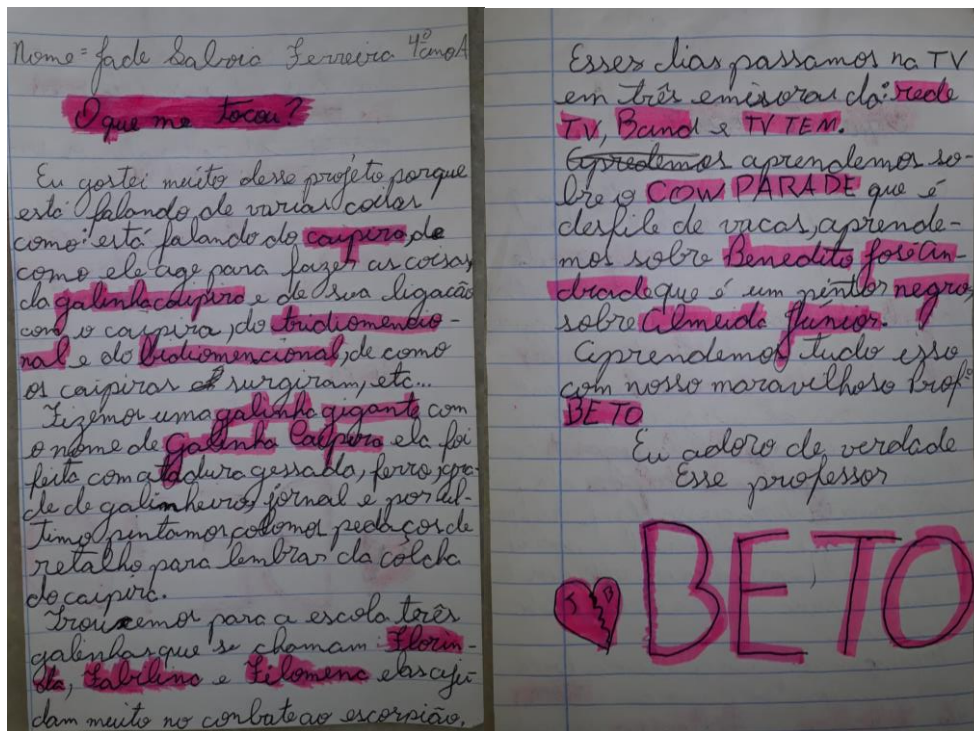 Nome = Jade Salvoia Ferreira 4º ano A
O que me tocou?
Eu gostei muito desse projeto porque
está falando, de varias coisas
como: está falando do caipira, de
como ele age para fazer as coisas,
da galinha caipira e de sua ligação
com o caipira, do tridiomencio-
nal e do bidiomencional, de como
os caipiras surgiram, etc...
Fizemos uma galinha gigante com
o nome de Galinha Caipira ela foi
feita com atadura gessada, ferro, gra-
de de galinheiro, jornal e por ul-
timo pintamos colomos pedaços de
retalho para lembras da colcha
do caipira.
Trouxemos para a escola três
galinhas que se chamam: Florin-
da, e Filomena elas aju-
dam muito no conbate ao escorpião.
Esses dias passamos na TV
em três emisoras da: rede
TV, Band e TV TEM.
Apredemos aprendemos so-
bre o COW PARADE que é
desfile de vacas, aprende-
mos sobre Benedito José An-
drade que é um pintor negro,
sobre Almeida Junior.
Aprendemos tudo isso
com nosso maravilhoso Profº
BETO
Eu adoro de verdade
Esse professor
J B
BETO